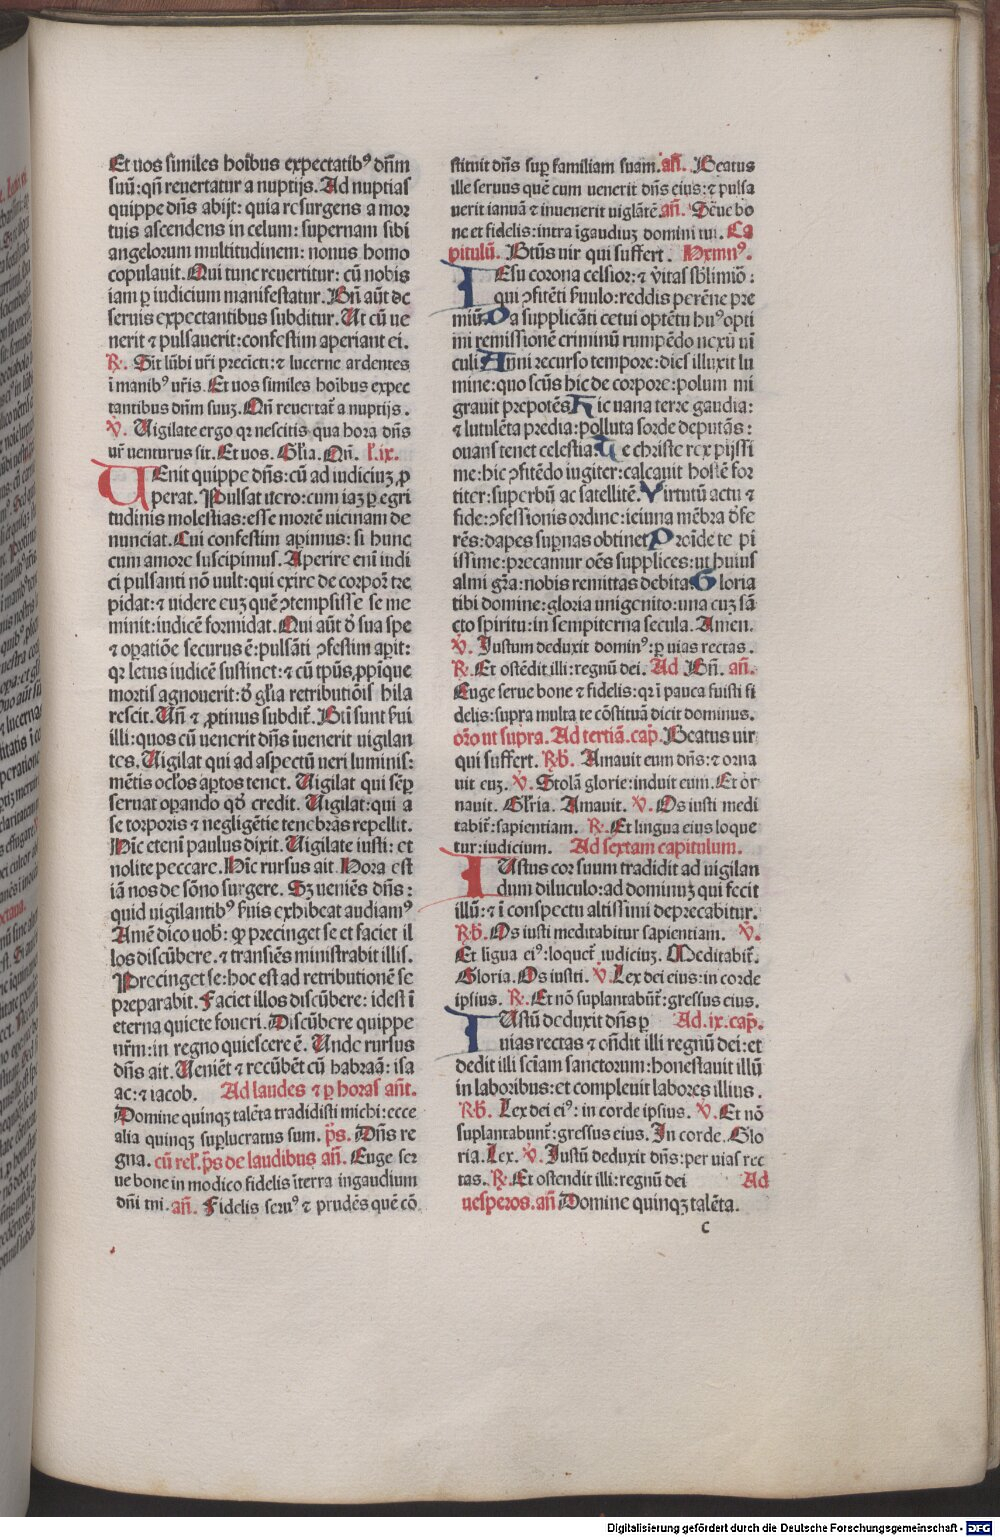 Et uos similes hoībus expectatibꝰ dn̄m
suū: qn̄ reuertatur a nuptijs. Ad nuptias
quippe dn̄s abijt: quia resurgens a mor
tuis ascendens in celum: supernam sibi
angelorum multitudinem: nouus homo
copulauit. Qui tunc reuertitur: cū nobis
iam ꝑ iudicium manifestatur. Bn̄ aūt de
seruis expectantibus subditur. Ut cū ue
nerit ⁊ pulsauerit: confestim aperiant ei.
R. Sint lūbi vr̄i precīcti: ⁊ lucerne ardentes
ī manibꝰ vr̄is. Et uos similes hoībus expec
tantibus dn̄m suuꝫ. Qn̄ reuertat̄ a nuptijs.
V. Uigilate ergo qꝛ nescitis qua hora dn̄s
ur̄ venturus sit. Et uos. Gl̄ia. Qn̄. l̄. ix.
UEnit quippe dn̄s: cū ad iudiciuꝫ ꝓ
perat. Pulsat uero: cum iaꝫ ꝑ egri
tudinis molestias: esse mortē uicinam de
nunciat. Cui confestim aꝑimus: si hunc
cum amore suscipimus. Aperire eni īudi
ci pulsanti nō uult: qui exire de corpoꝛ tre
pidat: ⁊ uidere euꝫ quē ↄtempsisse se me
minit: iudicē formidat. Qui aūt ď sua spe
⁊ oꝑatiōe securus ē: pulsāti ↄfestim aꝑit:
qꝛ letus iudicē sustinet: ⁊ cū tp̄us ꝓpīque
mortis agnouerit: ď gl̄ia retributiōis hila
rescit. Un̄ ⁊ ꝓtinus subdit̄. Bt̄i sunt ẜui
illi: quos cū uenerit dn̄s īuenerit uigilan
tes. Uigilat qui ad aspectū ueri luminis:
mētis oc̄los aꝑtos tenet. Uigilat qui sēꝑ
seruat oꝑando qď credit. Uigilat: qui a
se torporis ⁊ negligētie tenebras repellit.
Hīc eteni paulus dixit. Uigilate iusti: et
nolite peccare. Hīc rursus ait. Hora est
iā nos de sōno surgere. Sꝫ ueniēs dn̄s:
quid uigilantibꝰ ẜuis exhibeat audiamꝰ
Amē dico uob̄: ꝙ precinget se et faciet il
los discūbere. ⁊ transiēs ministrabit illis.
Precinget se: hoc est ad retributionē se
preparabit. Faciet illos discūbere: idest ī
eterna quiete foueri. Discūbere quippe
nr̄m: in regno quiescere ē. Unde rursus
dn̄s ait. Ueniēt ⁊ recūbēt cū habraā: isa
ac: ⁊ iacob. Ad laudes ⁊ ꝑ horas an̄t.
Domine quinqꝫ talēta tradidisti michi: ecce
alia quinqꝫ suꝑlucratus sum. p̄s. Dn̄s re
gna. cū rel̄. p̄s de laudibus an̄. Euge ser
ue bone in modico fidelis īterra ingaudium
dn̄i tui. an̄. Fidelis seruꝰ ⁊ prudēs quē cō
stituit dn̄s suꝑ familiam suam. an̄. Beatus
ille seruus quē cum venerit dn̄s eius: ⁊ pulsa
uerit ianuā ⁊ inuenerit uiglātē an̄. Serue bo
ne et fidelis: intra īgaudiuꝫ domini tui. Ca
pitulū. Bt̄us uir qui suffert. Hymnꝰ.
IEsu corona celsior: ⁊ v̄itas sb̄limiō:
qui ↄfitēti ẜuulo: reddis perēne pre
miū. Da supplicāti cetui optētu huꝰ opti
mi remissionē criminū rumpēdo nexū ui
culi Anni recurso tempore: dies illuxit lu
mine: quo scūs hic de corpore: polum mi
grauit prepotēs Hic uana terre gaudia:
⁊ lutulēta predia: polluta sorde deputās:
ouans tenet celestia: Te christe rex pijssi
me: hic ↄfitēdo iugiter: calcauit hostē for
titer: superbū ac satellitē. Virtutū actu ⁊
fide: ↄfessionis ordine: ieiuna mēbra ďfe
rēs: dapes suꝑnas obtinet Proīde te pi
issime: precamur oēs supplices: ut huius
almi gr̄a: nobis remittas debita Gloria
tibi domine: gloria unigenito: una cuꝫ sā
cto spiritu: in sempiterna secula. Amen.
V. Iustum deduxit dominꝰ: ꝑ uias rectas.
R. Et ostēdit illi: regnū dei. Ad Bn̄. an̄.
Euge serue bone ⁊ fidelis: qꝛ ī pauca fuisti fi
delis: supra multa te cōstituā dicit dominus.
or̄o ut supra. Ad tertiā. cap̄. Beatus uir
qui suffert. Rb̄. Amauit eum dn̄s: ⁊ orna
uit euꝫ. V. Stolā glorie: induit eum. Et or
nauit. Gl̄ria. Amauit. V. Os iusti medi
tabit̄: sapientiam. R. Et lingua eius loque
tur: iudicium. Ad sextam capitulum.
IUstus cor suum tradidit ad uigilan
dum diluculo: ad dominuꝫ qui fecit
illū: ⁊ ī conspectu altissimi deprecabitur.
Rb̄. Os iusti meditabitur sapientiam. V.
Et ligua eiꝰ: loquet̄ iudiciuꝫ. Meditabit̄.
Gloria. Os iusti. V. Lex dei eius: in corde
ipsius. R. Et nō suplantabūt̄: gressus eius.
IUstū deduxit dn̄s ꝑ Ad. ix. cap̄.
uias rectas ⁊ on̄dit illi regnū dei: et
dedit illi sciam sanctorum: honestauit illū
in laboribus: et compleuit labores illius.
Rb̄. Lex dei eiꝰ: in corde ipsius. V. Et nō
suplantabunt̄: gressus eius. In corde. Glo
ria. Lex. V. Iustū deduxit dn̄s: per uias rec
tas. R. Et ostendit illi: regnū dei Ad
uesperos. an̄ Domine quinqꝫ talēta.
c
Digitalisierung gefördert durch die Deutsche Forschungsgemeinschaft - DFG